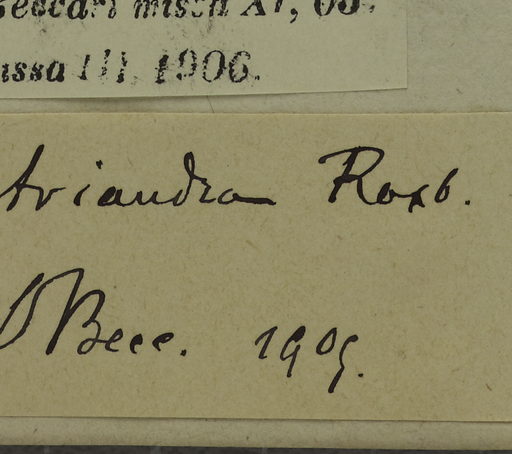 Beccari misch XI, 05.
ussa III, 1906.
triandra Roxb.
O Becc. 1909.